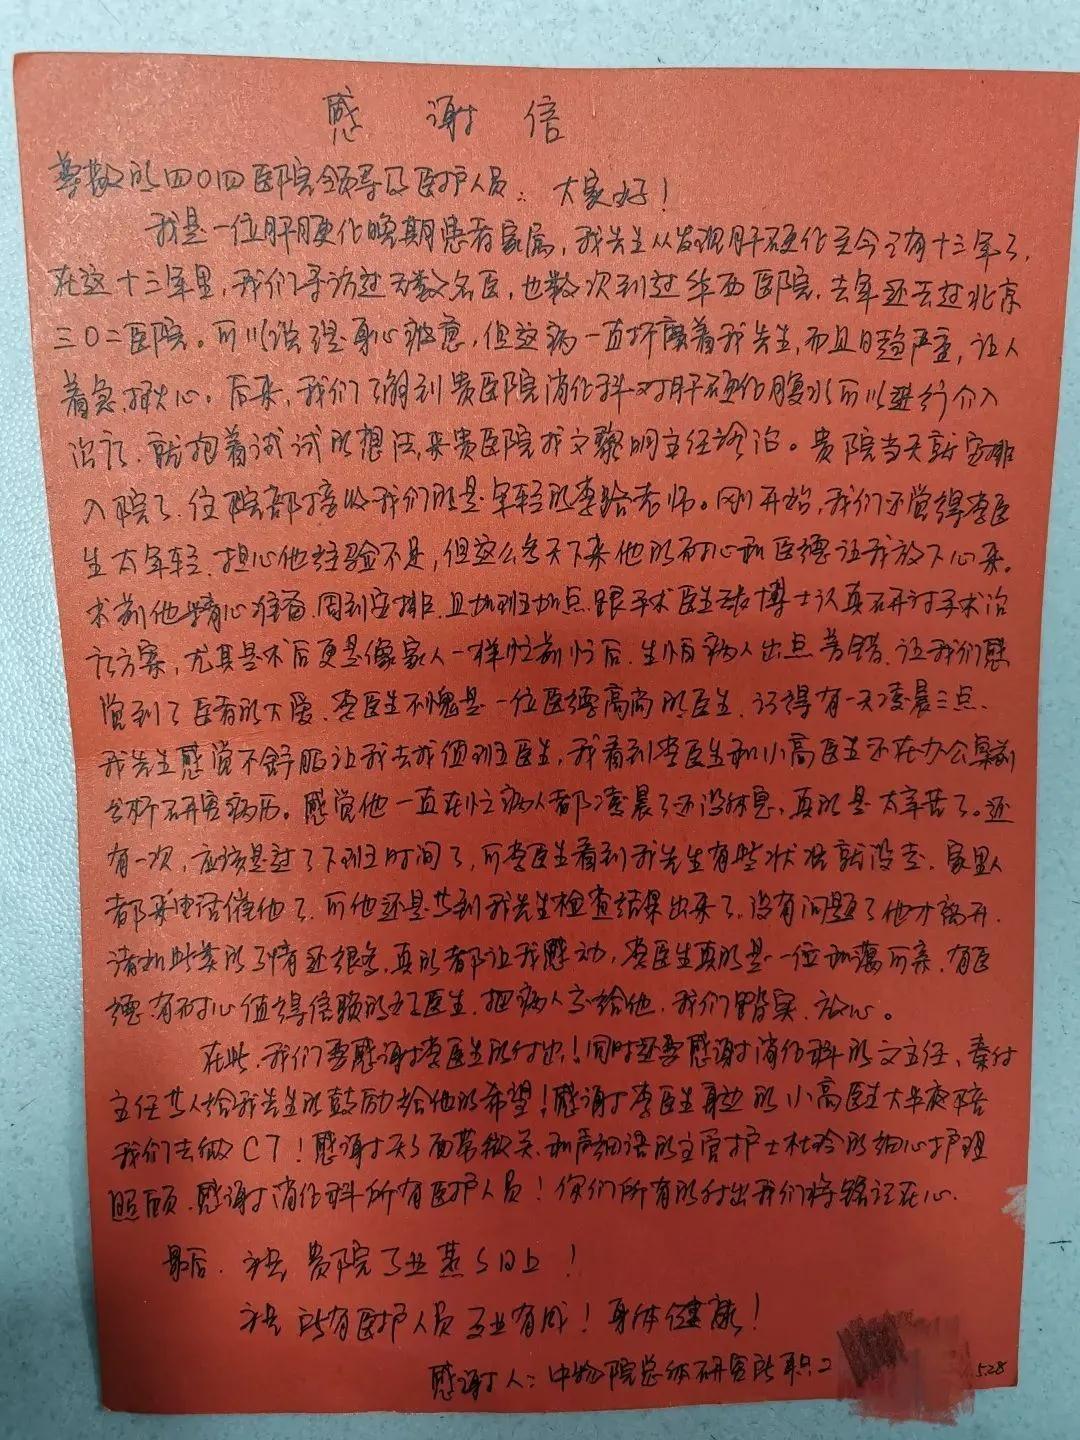 感谢信
尊敬的四0四医院领导及医护人员：大家好！
我是一位肝硬化晚期患者家属，我先生从发现肝硬化至今已有十三年了，
在这十三年里，我们寻访过无数名医，也数次到过华西医院，去年还去过北京
三0二医院。可以说是身心疲惫，但这病一直折磨着我先生，而且日趋严重，让人
着急、揪心。后来，我们了解到贵医院消化科对肝硬化腹水可以进行介入
治疗，就抱着试试的想法，来贵医院找文黎明主任诊治。贵院当天就安排
入院了，住院部接收我们的是年轻的李路老师。刚开始，我们还觉得李医
生太年轻，担心他经验不足，但这么多天下来他的耐心和医德让我放下心来。
术前他精心准备，周到安排，且加班加点，跟手术医生博士认真研讨手术治
疗方案，尤其是术后更是像家人一样忙前忙后，生怕病人出点差错，让我们感
觉到了医者的大爱，李医生不愧是一位医德高尚的医生，记得有一天凌晨三点，
我先生感觉不舒服让我去找值班医生，我看到李医生和小高医生还在办公桌前
分析研究病历。感觉他一直在忙病人都凌晨了还没休息，真的是太辛苦了。还
有一次，应该是过了下班时间了，可李医生看到我先生有些状况就没走，家里人
都来电话催他了，可他还是等到我先生检查结果出来了，没有问题了他才离开，
诸如此类的事情还很多，真的都让我感动，李医生真的是一位和蔼可亲，有医
德，有耐心值得信赖的好医生，把病人交给他，我们踏实，放心。
在此，我们要感谢李医生的付出！同时还要感谢消化科的文主任、秦付
主任等人给我先生的鼓励给他的希望！感谢李医生身边的小高医生大半夜陪
我们去做CT！感谢天天面带微笑，和声细语的主管护士杜玲的细心护理
照顾，感谢消化科所有医护人员！你们所有的付出我们将铭记在心。
最后，祝贵院事业蒸蒸日上！
祝所有医护人员事业有成！身体健康！
感谢人：中物院总体研究所职工
5.28